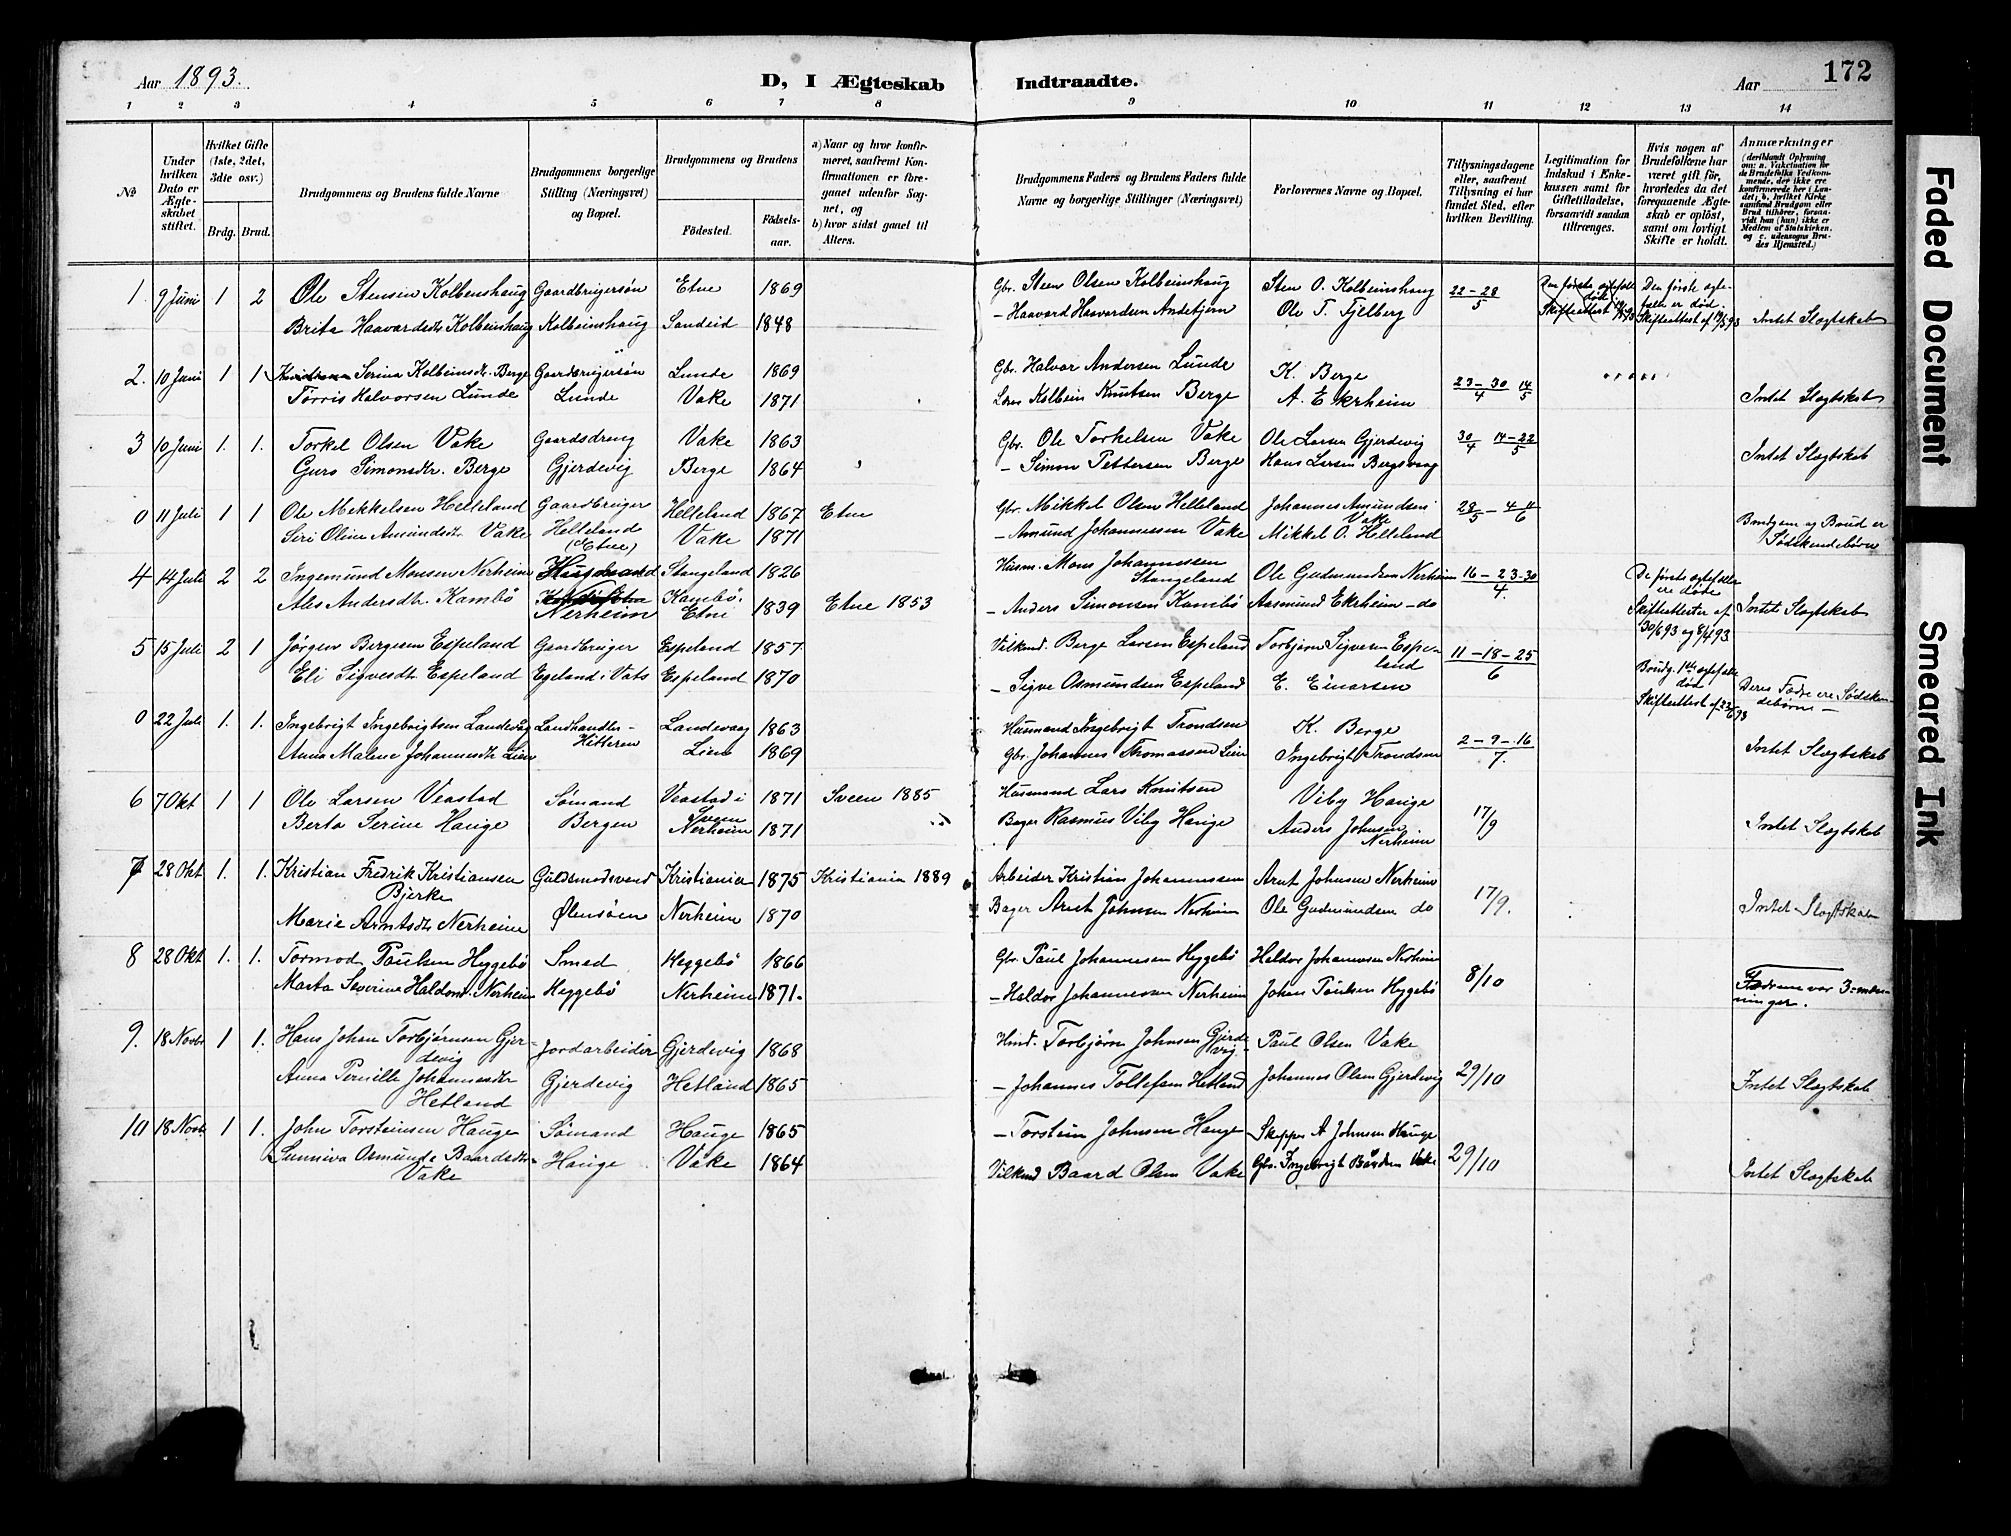 Aar 1893.
D, I Ægteskab Indtraadte.
Aar
172
1 2 3 4 5 6 7 8 9 10 11 12 13 14
No
Under hvilken Dato er Ægteskabet stiftet.
Hvilket Gifte (1ste, 2det, 3die osv.)
Brdg. Brud.
Brudgommens og Brudens fulde Navne
Brudgommens borgerlige Stilling (Næringsvei) og Bopæl.
Brudgommens og Brudens
Fødested.
Fødselsaar.
a) Naar og hvor konfirmeret, saafremt Konfirmationen er foregaaet udenfor Sognet, og
b) hvor sidst gaaet til Alters.
Brudgommens Faders og Brudens Faders fulde Navne og borgerlige Stillinger (Næringsvei)
Forlovernes Navne og Bopæl.
Tillysningsdagene eller, saafremt Tillysning ei har fundet Sted, efter hvilken Bevilling.
Legitimation for Indskud i Enkekassen samt for Giftetilladelse, forsaavidt saadan tiltrænges.
Hvis nogen af Brudefolkene har været gift før, hvorledes da det foregaaende Ægteskab er opløst, samt om lovligt Skifte er holdt.
Anmærkninger
(deriblandt Oplysning om: a. Vakcination for de Brudefolks Vedkommende, der ikke ere konfirmerede her i Landet; b. hvilket Kirkesamfund Brudgom eller Brud tilhører, forsaavidt han (hun) ikke er Medlem af Statskirken, og c. udensogns Brudes Hjemsted.)
1. 9 Juni 1 2 Ole Stensen Kolbenshaug Gaardbrugersøn Etne 1869 Gbr. Steen Olsen Kolbeinshaug Sten O. Kolbeinshaug 22-28/5 Den første ægtefælle er død. Skifteattest af 19/5 93
Brita Haavardsdtr Kolbeinshaug Kolbeinshaug Sandeid 1848 - Haavard Haavardsen Ole T. Fjelberg Intet Slægtskab
2. 10 Juni 1 1 Serina Kolbeinsdt. Berge Gaardbrugersøn Lunde 1869 Gbr. Halvor Andersen Lunde K. Berge 23-30/4 14/5
Tørris Halvorsen Lunde Lunde Vake 1871 Kolbein Knutsen Berge A. Ekrheim Intet Slægtskab
3 10 Juni 1. 1. Torkel Olsen Vake Gaardsdreng Vake 1863 Gbr. Ole Torkelsen Vake Ole Larsen Gjerdevig 30/4 14-22/5
Guro Simonsdtr. Berge Gjerdevig Berge 1864 - Simon Pettersen Berge Hans Larsen Bergsvaag Intet Slægtskab
0 11 Juli 1 1 Ole Mikkelsen Helleland Gaardbruger Helleland 1867 Etne Gbr. Mikkel Olsen Helleland Johannes Amundsen Vake 28/5 - 4
Siri Oline Amundsdtr Vake Helleland (Etne) Vake 1871 - Amund Johannessen Vake Mikkel O. Helleland Brudgom og Brud er Sødskendebørn
4 14 Juli 2 2 Ingemund Monsen Nerheim Stangeland 1826 Husm. Mons Johannessen Stangeland Ole Gudmundsen Nerheim 16-23-30/4. De første ægtefæller ere døde
Ales Andersdtr. Kambø Nerheim Kambø, Etne 1839 Etne 1853 - Anders Simonsen Kambø Aasmund Ekrheim - do Skifteattester af 30/6 93 og 8/4 93 Intet Slægtskab
5 15 Juli 2 1 Jørgen Bergesen Espeland Gaardbruger Espeland 1857 Vilkmd. Berge Larsen Espeland Torbjørn Sigvesen Espeland 11-18-25/6 Brudg. 1ste ægtefælle død
Eli Sigvesdtr Espeland Egeland i Vats Espeland 1870 - Sigve Osmundsen Espeland E. Einarsen Skifteattest af 23/6 93 Deres Fædre ere Sødskendebørn -
0 22 Juli 1. 1. Ingebrigt Ingebrigtsen Landevåg Landhandler - Landevaag 1863 Husmand Ingebrigt Trondsen K. Berge 2-9-16/7.
Anna Malene Johannesdtr Lien Hitteren Lien 1869 Gbr. Johannes Thomassen Lien Ingebrigt Trondsen Intet Slægtskab
6 7 Okt 1 1 Ole Larsen Veastad Sømand Veastad i Sveen 1871 Sveen 1885 Husmand Lars Knutsen Viby Hauge 17/9
Berta Serine Hauge Bergen Nerheim 1871 Bager Rasmus Viby Hauge Anders Johnsen Nerheim Intet Slægtskab
7 28 Okt 1. 1. Kristian Fredrik Kristiansen Bjerke Guldsmedsvend Kristiania 1875 Kristiania 1889 Arbeider Kristian Johannessen Arnt Johnsen Nerheim 17/9.
Marie Arntsdtr Nerheim Ølensøen Nerheim 1870 Bager Arnt Johnsen Nerheim Ole Gudmundsen do Intet Slægtskab
8 28 Okt. 1. 1. Tormod Paulsen Hyggebø Smed Heggebø 1866 Gbr. Paul Johannesen Hyggebø Haldor Johannesen Nerheim 8/10
Marta Severine Haldorsd. Nerheim Heggebø Nerheim 1871. - Haldor Johannesen Nerheim Johan Paulsen Hyggebø Fædrene var 3-menninger.
9. 18 Novbr 1 1. Hans Johan Torbjørnsen Gjerdevig Jordarbeider Gjerdevig 1868 Torbjørn Johnsen Gjerdevig Paul Olsen Vake 29/10
Anna Pernille Johannesdtr Hetland Gjerdevig Hetland 1865 - Johannes Tollefsen Hetland Johannes Olsen Gjerdevig Intet Slægtskab
10 18 Novb. 1 1. John Torsteinsen Hauge Sømand Hauge 1865 - Torstein Johnsen Hauge Skipper A Johnsen Hauge 29/10
Sunniva Osmunde Baardsdtr Vake Hauge Vake 1864 Vilkmd Baard Olsen Vake Gbr. Ingebrigt Bårdsen Vake Intet Slægtskab
Faded Document
Smeared Ink